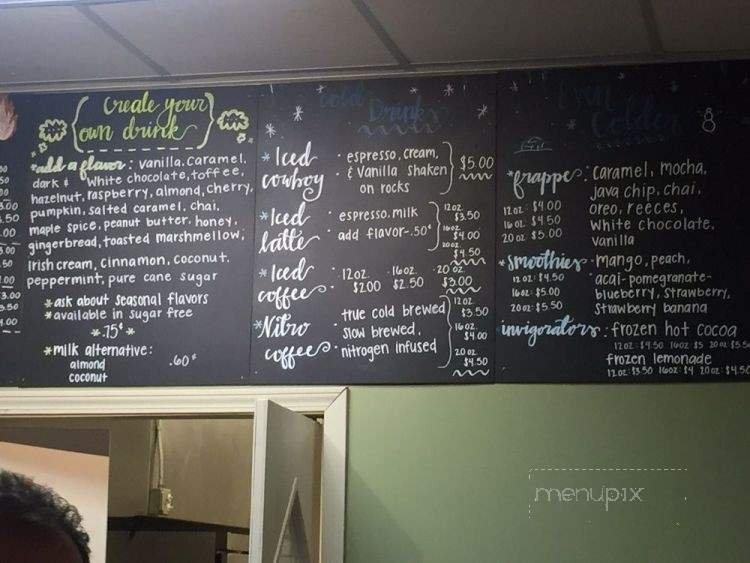 Create your
own drink
*add a flavor: vanilla, caramel,
dark & white chocolate, toffee,
hazelnut, raspberry, almond, cherry,
pumpkin, salted caramel, chai,
maple spice, peanut butter, honey,
gingerbread, toasted marshmellow,
Irish cream, cinnamon, coconut,
peppermint, pure cane sugar
*ask about seasonal flavors
*available in sugar free
*.75¢*
*milk alternative:
almond
coconut
.60¢
Cold Drinks
*Iced cowboy
• espresso, cream,
& vanilla shaken
on rocks
$5.00
*Iced latte
• espresso, milk
• add flavor-.50¢
12oz $3.50
16oz $4.00
20oz $4.50
*Iced coffee
• 12oz. $2.00
• 16oz. $2.50
• 20oz $3.00
*Nitro coffee
• true cold brewed
• slow brewed,
• nitrogen infused
12oz $3.50
16oz $4.00
20oz $4.50
Even Colder
*frappe: caramel, mocha,
java chip, chai,
oreo, reeces,
white chocolate,
vanilla
12oz: $4.00
16oz: $4.50
20oz: $5.00
*smoothies • mango, peach,
acai-pomegranate-
blueberry, strawberry,
strawberry banana
12oz: $4.50
16oz: $5.00
20oz: $5.50
invigorators: frozen hot cocoa
12oz: $4.50 16oz $5 20oz $5.50
frozen lemonade
12oz: $3.50 16oz: $4 20oz: $4.50
menupix